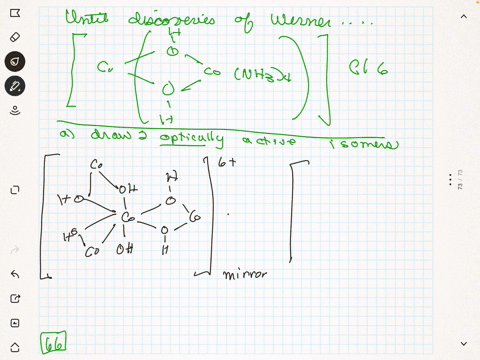 Until discoveries of Werner ....
H
O
Co
Co (NH3)4
Cl6
O
H
a) draw 2 optically active isomers
Co
6+
H
OH
HO
O
Co
Co
HO
O
Co
OH
H
mirror
66
73 / 73